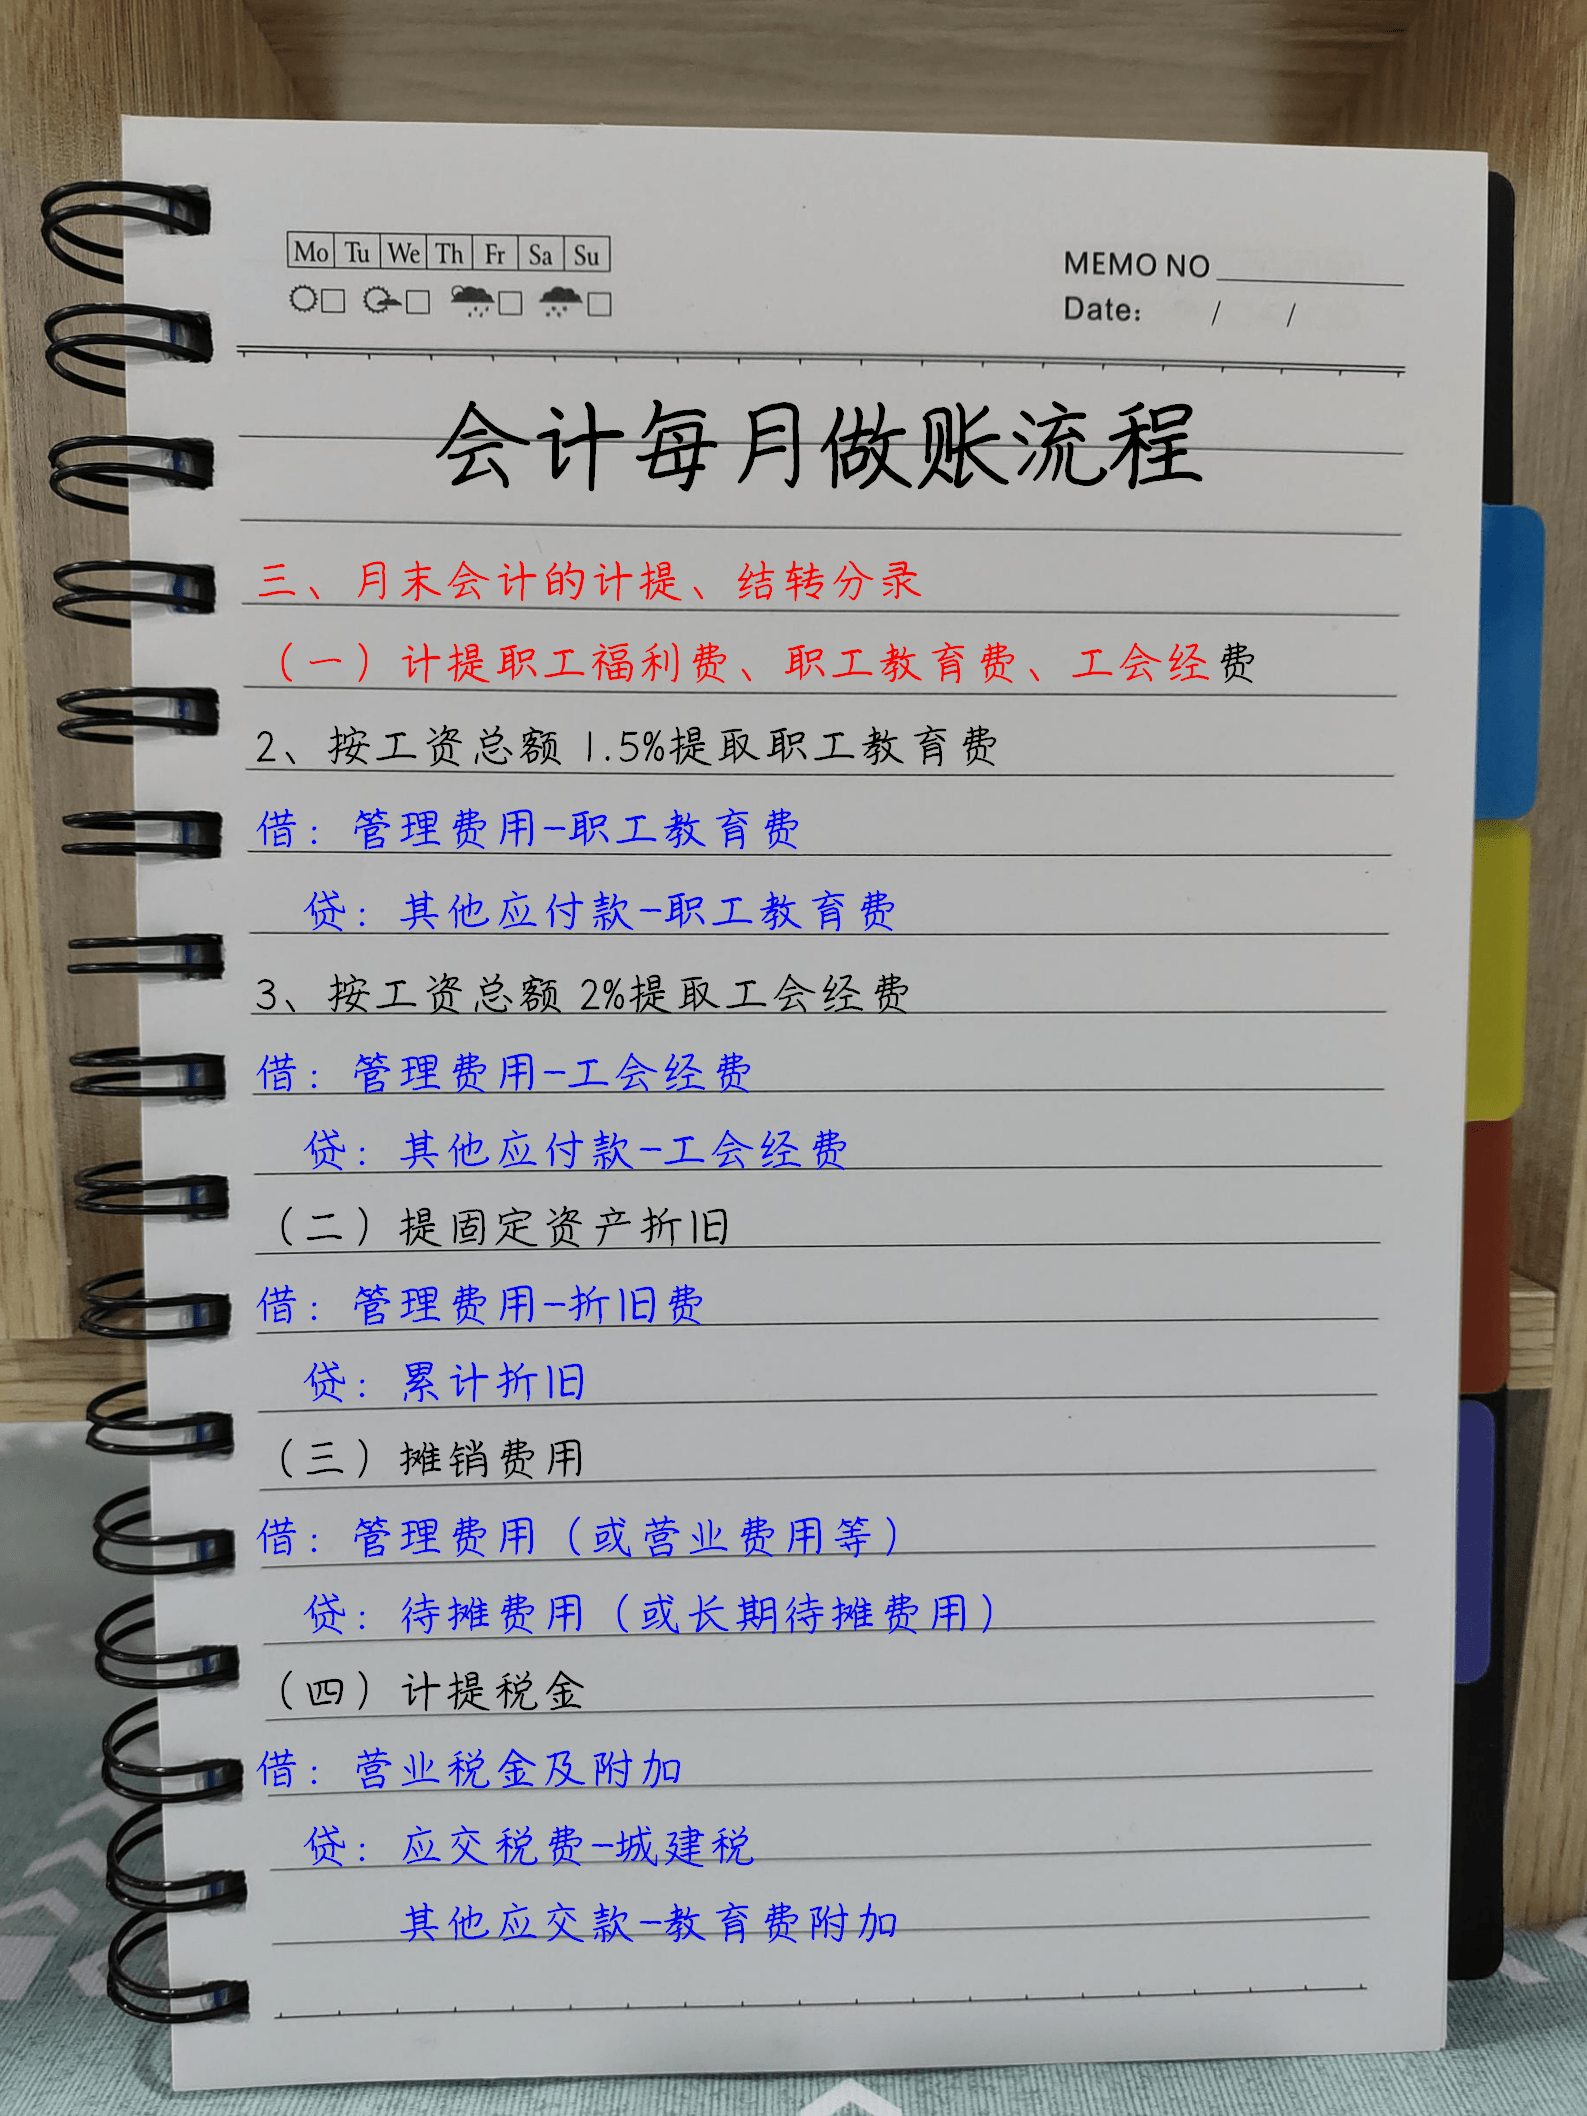 Mo Tu We Th Fr Sa Su
MEMO NO
Date: / /
会计每月做账流程
三、月末会计的计提、结转分录
（一）计提职工福利费、职工教育费、工会经费
2、按工资总额 1.5%提取职工教育费
借：管理费用-职工教育费
贷：其他应付款-职工教育费
3、按工资总额 2%提取工会经费
借：管理费用-工会经费
贷：其他应付款-工会经费
（二）提固定资产折旧
借：管理费用-折旧费
贷：累计折旧
（三）摊销费用
借：管理费用（或营业费用等）
贷：待摊费用（或长期待摊费用）
（四）计提税金
借：营业税金及附加
贷：应交税费-城建税
其他应交款-教育费附加